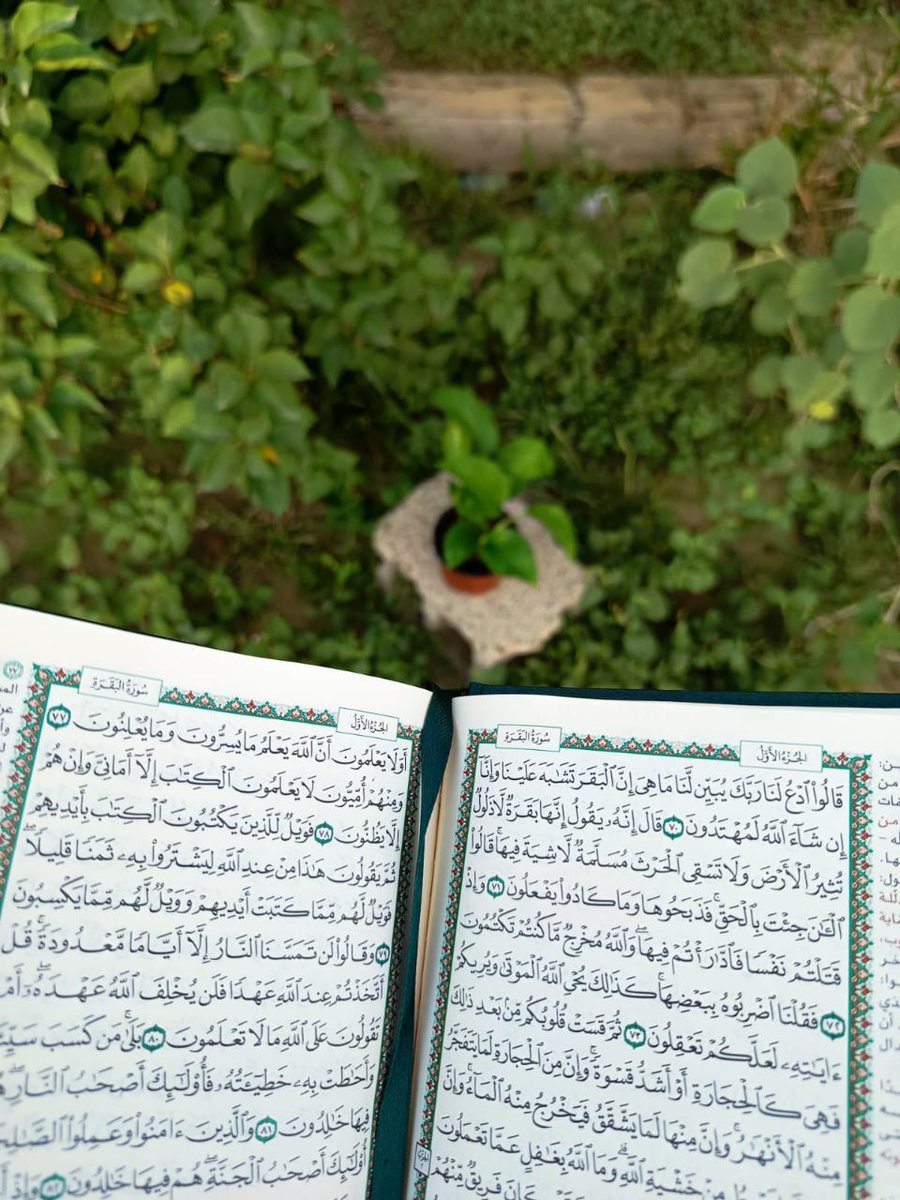 الجُزْءُ الأَوَّلُ
سُورَةُ البَقَرَةِ
قَالُوا۟ ٱدْعُ لَنَا رَبَّكَ يُبَيِّن لَّنَا مَا هِىَ إِنَّ ٱلْبَقَرَ تَشَٰبَهَ عَلَيْنَا وَإِنَّآ
إِن شَآءَ ٱللَّهُ لَمُهْتَدُونَ ٧٠ قَالَ إِنَّهُۥ يَقُولُ إِنَّهَا بَقَرَةٌ لَّا ذَلُولٌ
تُثِيرُ ٱلْأَرْضَ وَلَا تَسْقِى ٱلْحَرْثَ مُسَلَّمَةٌ لَّا شِيَةَ فِيهَا ۚ قَالُوا۟
ٱلْـَٰٔنَ جِئْتَ بِٱلْحَقِّ ۚ فَذَبَحُوهَا وَمَا كَادُوا۟ يَفْعَلُونَ ٧١ وَإِذْ
قَتَلْتُمْ نَفْسًا فَٱدَّٰرَْٰٔتُمْ فِيهَا ۖ وَٱللَّهُ مُخْرِجٌ مَّا كُنتُمْ تَكْتُمُونَ
٧٢ فَقُلْنَا ٱضْرِبُوهُ بِبَعْضِهَا ۚ كَذَٰلِكَ يُحْىِ ٱللَّهُ ٱلْمَوْتَىٰ وَيُرِيكُمْ
ءَايَٰتِهِۦ لَعَلَّكُمْ تَعْقِلُونَ ٧٣ ثُمَّ قَسَتْ قُلُوبُكُم مِّنۢ بَعْدِ ذَٰلِكَ
فَهِىَ كَٱلْحِجَارَةِ أَوْ أَشَدُّ قَسْوَةً ۚ وَإِنَّ مِنَ ٱلْحِجَارَةِ لَمَا يَتَفَجَّرُ
مِنْهُ ٱلْأَنْهَٰرُ ۚ وَإِنَّ مِنْهَا لَمَا يَشَّقَّقُ فَيَخْرُجُ مِنْهُ ٱلْمَآءُ ۚ وَإِنَّ
خَشْيَةِ ٱللَّهِ ۗ وَمَا ٱللَّهُ بِغَٰفِلٍ عَمَّا تَعْمَلُونَ
كَانَ فَرِيقٌ مِّنْهُمْ
الجُزْءُ الأَوَّلُ
سُورَةُ البَقَرَةِ
أَوَلَا يَعْلَمُونَ أَنَّ ٱللَّهَ يَعْلَمُ مَا يُسِرُّونَ وَمَا يُعْلِنُونَ ٧٧
وَمِنْهُمْ أُمِّيُّونَ لَا يَعْلَمُونَ ٱلْكِتَٰبَ إِلَّآ أَمَانِىَّ وَإِنْ هُمْ
إِلَّا يَظُنُّونَ ٧٨ فَوَيْلٌ لِّلَّذِينَ يَكْتُبُونَ ٱلْكِتَٰبَ بِأَيْدِيهِمْ
ثُمَّ يَقُولُونَ هَٰذَا مِنْ عِندِ ٱللَّهِ لِيَشْتَرُوا۟ بِهِۦ ثَمَنًا قَلِيلًا ۖ
فَوَيْلٌ لَّهُم مِّمَّا كَتَبَتْ أَيْدِيهِمْ وَوَيْلٌ لَّهُم مِّمَّا يَكْسِبُونَ
٧٩ وَقَالُوا۟ لَن تَمَسَّنَا ٱلنَّارُ إِلَّآ أَيَّامًا مَّعْدُودَةً ۚ قُلْ
أَتَّخَذْتُمْ عِندَ ٱللَّهِ عَهْدًا فَلَن يُخْلِفَ ٱللَّهُ عَهْدَهُۥٓ ۖ أَمْ
تَقُولُونَ عَلَى ٱللَّهِ مَا لَا تَعْلَمُونَ ٨٠ بَلَىٰ مَن كَسَبَ سَيِّئَةً
وَأَحَٰطَتْ بِهِۦ خَطِيٓـَٔتُهُۥ فَأُو۟لَٰٓئِكَ أَصْحَٰبُ ٱلنَّارِ ۖ هُمْ
فِيهَا خَٰلِدُونَ ٨١ وَٱلَّذِينَ ءَامَنُوا۟ وَعَمِلُوا۟
أُو۟لَٰٓئِكَ أَصْحَٰبُ ٱلْجَنَّةِ ۖ هُمْ فِيهَا خَٰلِدُونَ ٨٢ وَإِذْ